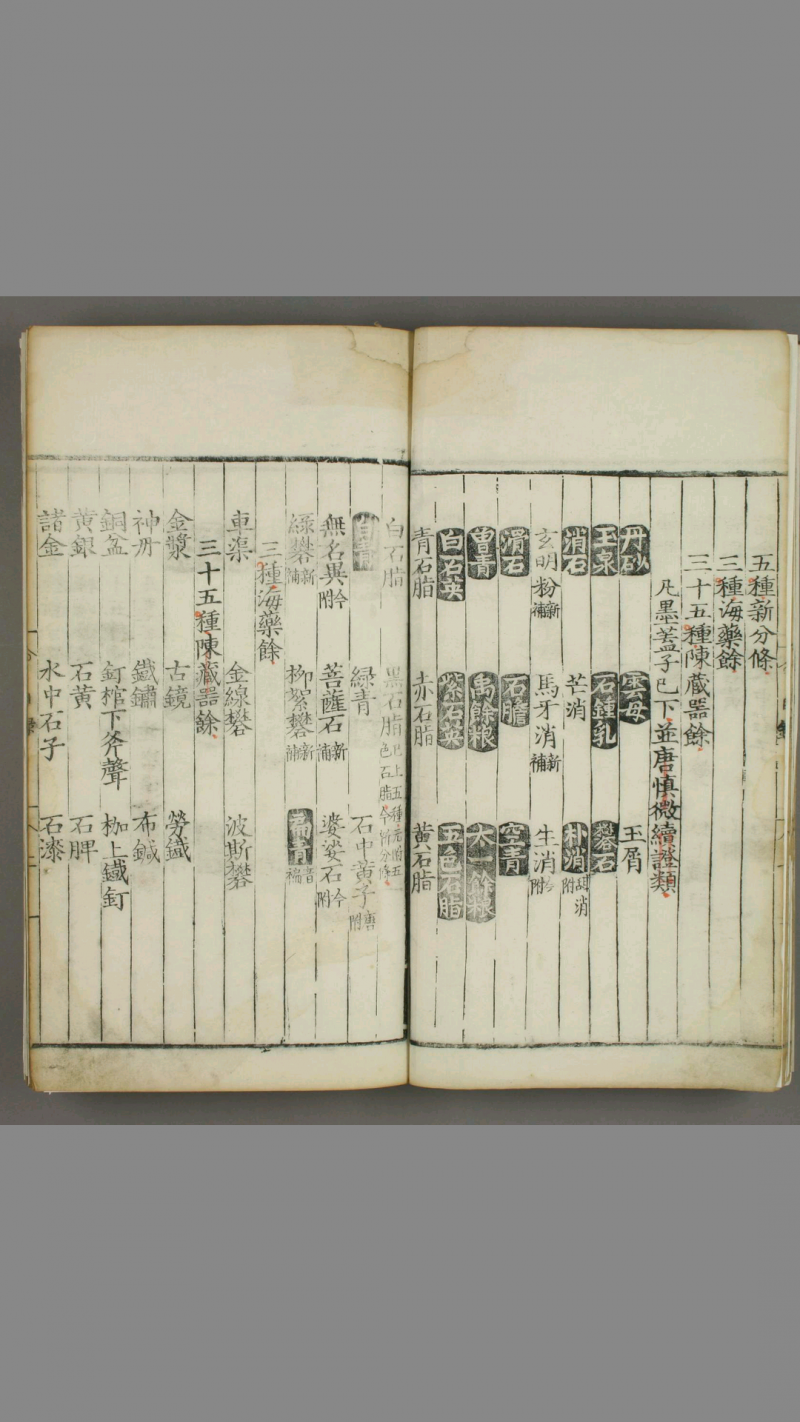 五種新分條
三種海藥餘
三十五種陳藏器餘
凡墨蓋子已下並唐慎微續證類
丹砂 雲母 玉屑
玉泉 石鍾乳 礬石
消石 芒消 朴消胡消附
玄明粉新補 馬牙消新補 生消今附
滑石 石膽 空青
曾青 禹餘粮 太一餘粮
白石英 紫石英 五色石脂
青石脂 赤石脂 黃石脂
白石脂 黑石脂已上五種元附五色石脂今新分條
白青 緑青 石中黃子唐附
無名異今附 菩薩石新補 婆娑石今附
緑礬新補 柳絮礬新補 扁青音褊
三種海藥餘
車渠 金線礬 波斯礬
三十五種陳藏器餘
金漿 古鏡 勞鐵
神丹 鐵鏽 布鍼
銅盆 釘棺下斧聲 枷上鐵釘
黃銀 石黃 石脾
諸金 水中石子 石漆